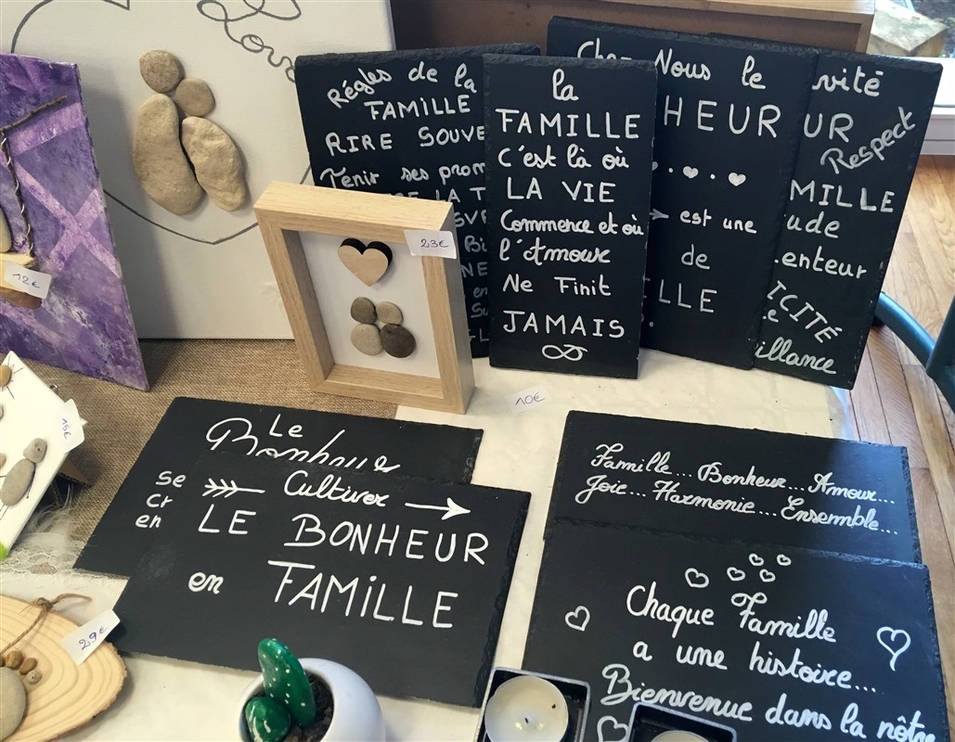 Love
Régles de la
FAMILLE
RIRE SOUVE
Tenir ses prom
LA T
la
FAMILLE
C'est là où
LA VIE
Commence et où
l'Amour
Ne Finit
JAMAIS
Nous le
HEUR
est une
de
LLE
vité
UR
Respect
MILLE
ude
enteur
ICITÉ
illance
23€
12€
15€
10€
29€
Le
Bonheur
se
cr
en
Cultiver
LE BONHEUR
en FAMILLE
Famille... Bonheur... Amour...
Joie... Harmonie... Ensemble...
Chaque Famille
a une histoire...
Bienvenue dans la nôtre